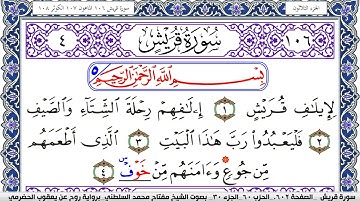 الجزء الثلاثون
سورة قريش ١٠٦ الماعون ١٠٧ الكوثر ١٠٨
١٠٦ سُورَةُ قُرَيْشٍ ٤
بِسْمِ اللَّهِ الرَّحْمَٰنِ الرَّحِيمِ
لِإِيلَافِ قُرَيْشٍ ١ إِۦلَافِهِمْ رِحْلَةَ الشِّتَآءِ وَالصَّيْفِ
٢ فَلْيَعْبُدُوا۟ رَبَّ هَٰذَا الْبَيْتِ ٣ الَّذِىٓ أَطْعَمَهُم
مِّن جُوعٍ وَءَامَنَهُم مِّنْ خَوْفٍۭ ٤
سورة قريش . الصفحة ٦٠٢ . الحزب ٦٠ . الجزء ٣٠ . بصوت الشيخ مفتاح محمد السلطني . برواية روح عن يعقوب الحضرمي